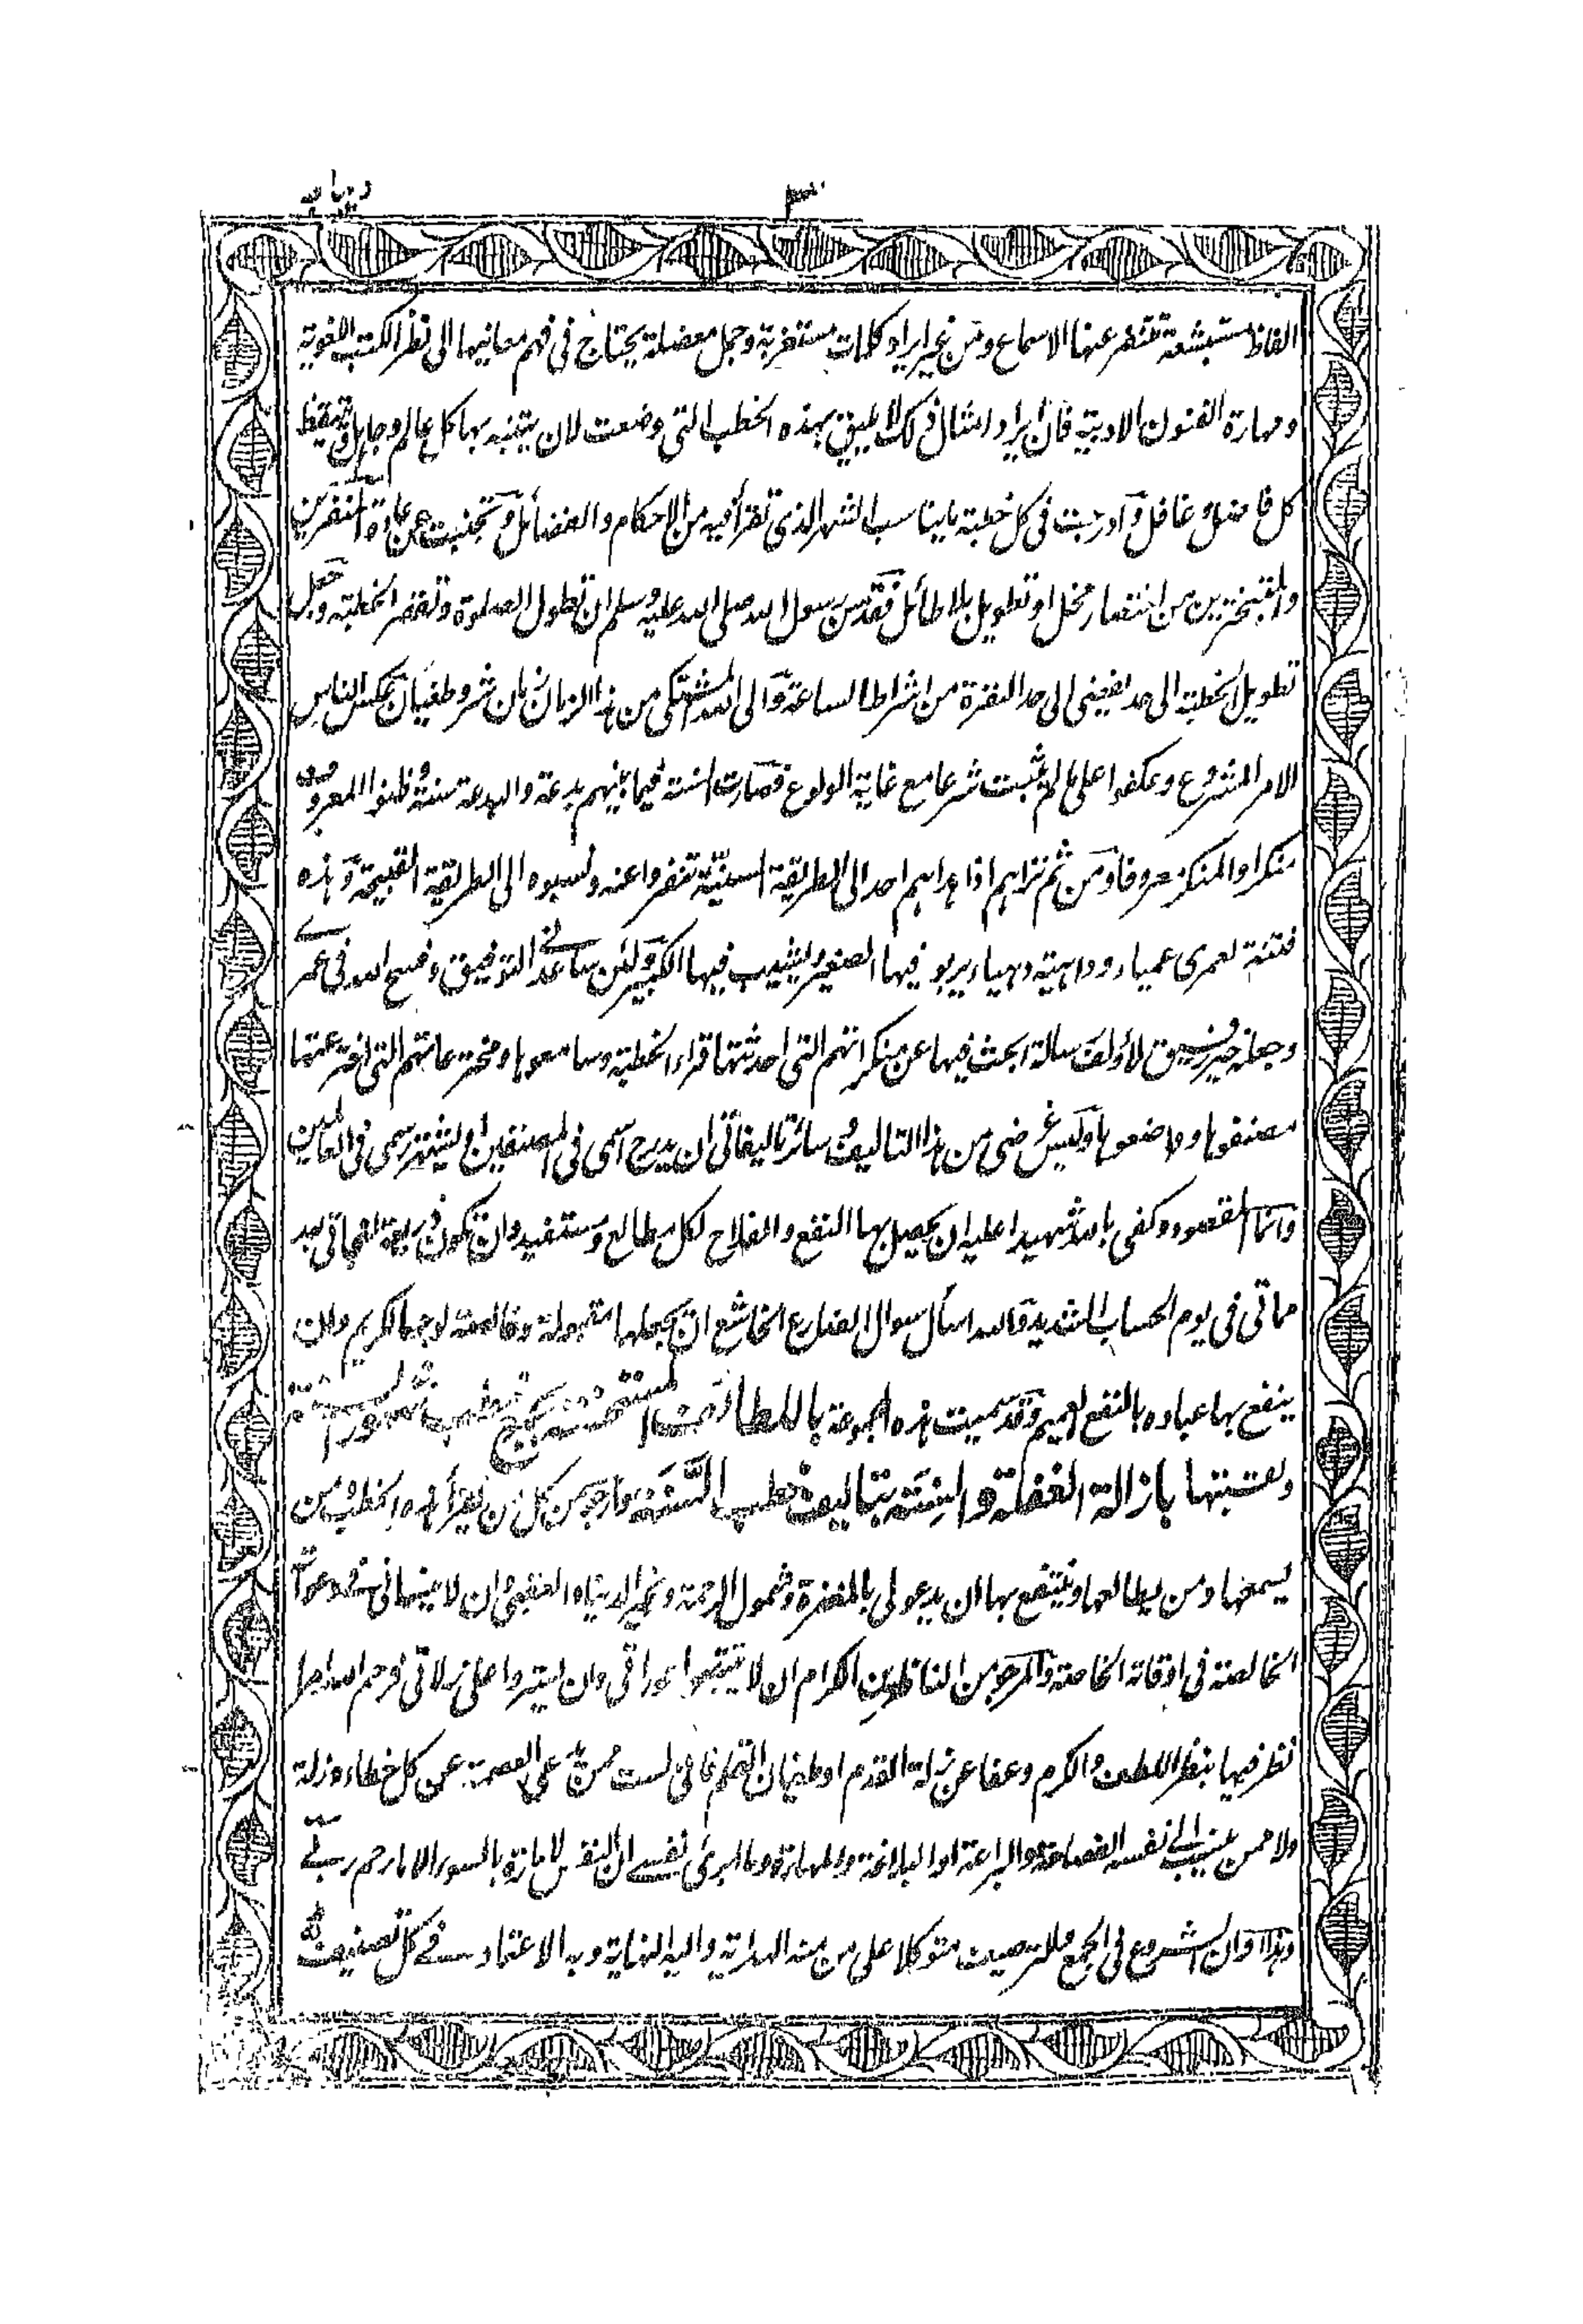 ٣
ديباجه
الفاظ مستبشعة تتنفر عنها الاسماع ومن غير ايراد كلمات مستغربة وجمل معضلة يحتاج فى فهم معانيها الى نظر الكتب اللغوية
ومهارة الفنون الادبية فان ايراد امثال ذلك لا يليق بهذه الخطب التى وضعت لان يتنبه بها كل عالم وجاهل ويتيقظ
كل فاضل وغافل وادرجت فى كل خطبة ما يناسب الشهر الذى تقرأ فيه من الاحكام والفضائل وتجنبت عن عادة المتفرين
والمتبخترين من اختصار مخل او تطويل بلا طائل فقد سن رسول الله صلى الله عليه وسلم ان تطول الصلوة وتقصر الخطبة وجعل
تطويل الخطبة الى حد يفضى الى حد النفرة من اشراط الساعة والى الله المشتكى من هذا الزمان زمان شر وطغيان عكس الناس
الامر المشروع وعكفوا على ما لم يثبت شرعا مع غاية الولوع فصارت السنة فيما بينهم بدعة والبدعة سنة وظنوا المعروف
منكرا والمنكر معروفا ومن ثم تراهم اذا هداهم احد الى الطريقة السنية تنفروا عنه ونسبوه الى الطريقة القبيحة وهذه
فتنة لعمرى عمياء وداهية دهياء يربو فيها الصغير ويشيب فيها الكبير ولئن ساعدنى التوفيق وفسح الله فى عمرى
وجعله خير رفيق لاؤلف رسالة ابحث فيها عن منكراتهم التى احدثتها قراء الخطبة وسامعوها ومخترعاتهم التى اخترعتها
مصنفوها وواضعوها وليس غرضى من هذا التاليف وسائر تاليفاتى ان يدرج اسمى فى المصنفين او يشتهر رسمى فى العالمين
وانما المقصود وكفى بالله شهيدا عليه ان يحصل بها النفع والفلاح لكل مطالع ومستفيد وان تكون ذريعة لنجاتى بعد
مماتى فى يوم الحساب الشديد والله اسأل سوال الضارع الخاشع ان يجعلها مقبولة وخالصة لوجهه الكريم وان
ينفع بها عباده بالنفع العميم وقد سميت هذه المجموعة باللطائف المستحسنة بجمع خطب شهور السنة
ولقبتها بازالة الغفلة والسنة بتاليف خطب السنة وارجو من كل من يقرأ هذه الخطب ومن
يسمعها ومن يطالعها وينتفع بها ان يدعو لى بالمغفرة وشمول الرحمة وخير الدنيا والعقبى وان لا ينسانى فى دعوا
الخالصة فى اوقاته الخاصة والمرجو من الناظرين الكرام ان لا يتتبعوا عوراتى وان يستروا على زلاتى فرحم الله امرأ
نظر فيها بنظر اللطف والكرم وعفا عن زلة القدم او طغيان القلم فانى لست ممن يدعى العصمة عن كل خطاء وزلة
ولا ممن ينسب الى نفسه الفصاحة والبراعة او البلاغة والمهارة وما ابرئ نفسى ان النفس لامارة بالسوء الا ما رحم ربى
وهذا اوان الشروع فى الجمع والترصيف متوكلا على من منه الهداية واليه النهاية وبه الاعتماد فى كل تصنيف